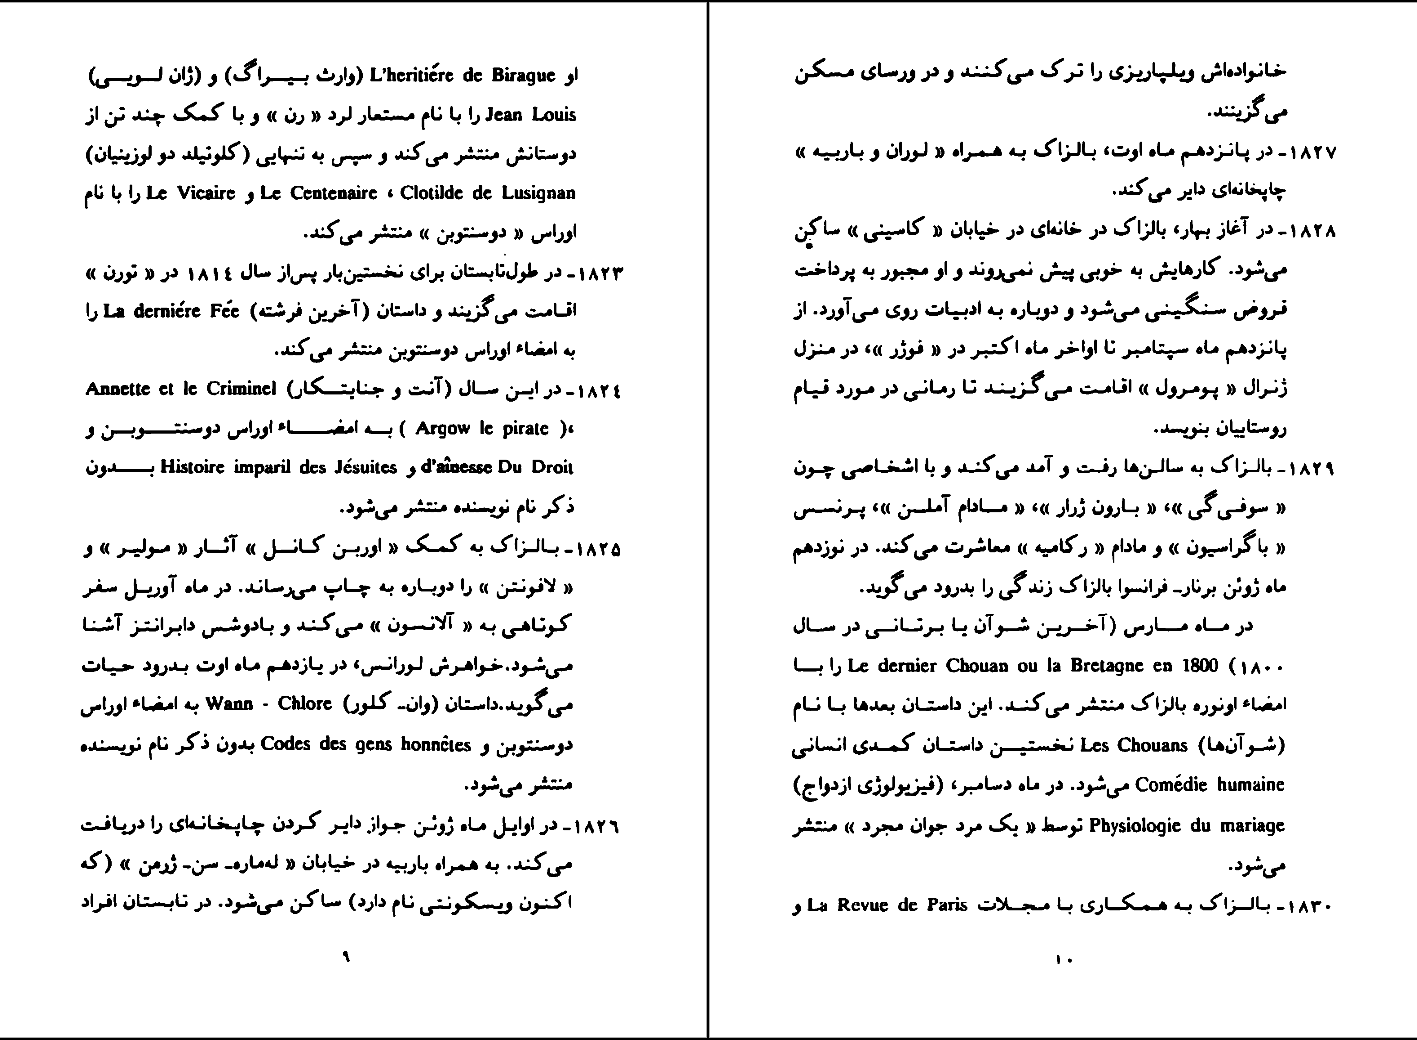 او L'heritiére de Birague (وارث بیراگ) و (ژان لویی)
Jean Louis را با نام مستعار لرد « رن » و با کمک چند تن از
دوستانش منتشر می‌کند و سپس به تنهایی (کلوتیلد دو لوزینیان)
Le Centenaire ، Clotilde de Lusignan و Le Vicaire را با نام
اوراس « دوسنتوبن » منتشر می‌کند.
۱۸۲۳ـ در طول‌تابستان برای نخستین‌بار پس‌از سال ۱۸۱٤ در « تورن »
اقامت می‌گزیند و داستان (آخرین فرشته) La derniére Fée را
به امضاء اوراس دوسنتوبن منتشر می‌کند.
۱۸۲٤ـ در این سال (آنت و جنایتکار) Annette et le Criminel
،( Argow le pirate ) به امضاء اوراس دوسنتوبن و
d'aînesse Du Droit و Histoire imparil des Jésuites بدون
ذکر نام نویسنده منتشر می‌شود.
۱۸۲۵ـ بالزاک به کمک « اوربن کانل » آثار « مولیر » و
« لافونتن » را دوباره به چاپ می‌رساند. در ماه آوریل سفر
کوتاهی به « آلانسون » می‌کند و بادوشس دابرانتز آشنا
می‌شود.خواهرش لورانس، در یازدهم ماه اوت بدرود حیات
می‌گوید.داستان (وان‌ـ کلور) Wann - Chlore به امضاء اوراس
دوسنتوبن و Codes des gens honnêtes بدون ذکر نام نویسنده
منتشر می‌شود.
۱۸۲٦ـ در اوایل ماه ژوئن جواز دایر کردن چاپخانه‌ای را دریافت
می‌کند. به همراه باربیه در خیابان « له‌ماره‌ـ سن‌ـ ژرمن » (که
اکنون ویسکونتی نام دارد) ساکن می‌شود. در تابستان افراد
۹
خانواده‌اش ویلپاریزی را ترک می‌کنند و در ورسای مسکن
می‌گزینند.
۱۸۲۷ـ در پانزدهم ماه اوت، بالزاک به همراه « لوران و باربیه »
چاپخانه‌ای دایر می‌کند.
۱۸۲۸ـ در آغاز بهار، بالزاک در خانه‌ای در خیابان « کاسینی » ساکن
می‌شود. کارهایش به خوبی پیش نمی‌روند و او مجبور به پرداخت
قروض سنگینی می‌شود و دوباره به ادبیات روی می‌آورد. از
پانزدهم ماه سپتامبر تا اواخر ماه اکتبر در « فوژر »، در منزل
ژنرال « پومرول » اقامت می‌گزیند تا رمانی در مورد قیام
روستاییان بنویسد.
۱۸۲۹ـ بالزاک به سالن‌ها رفت و آمد می‌کند و با اشخاصی چون
« سوفی‌گی »، « بارون ژرار »، « مادام آملن »، پرنسس
« باگراسیون » و مادام « رکامیه » معاشرت می‌کند. در نوزدهم
ماه ژوئن برنارـ فرانسوا بالزاک زندگی را بدرود می‌گوید.
در ماه مارس (آخرین شوآن یا برتانی در سال
۱۸۰۰) Le dernier Chouan ou la Bretagne en 1800 را با
امضاء اونوره بالزاک منتشر می‌کند. این داستان بعدها با نام
(شوآن‌ها) Les Chouans نخستین داستان کمدی انسانی
Comédie humaine می‌شود. در ماه دسامبر، (فیزیولوژی ازدواج)
Physiologie du mariage توسط « یک مرد جوان مجرد » منتشر
می‌شود.
۱۸۳۰ـ بالزاک به همکاری با مجلات La Revue de Paris و
۱۰